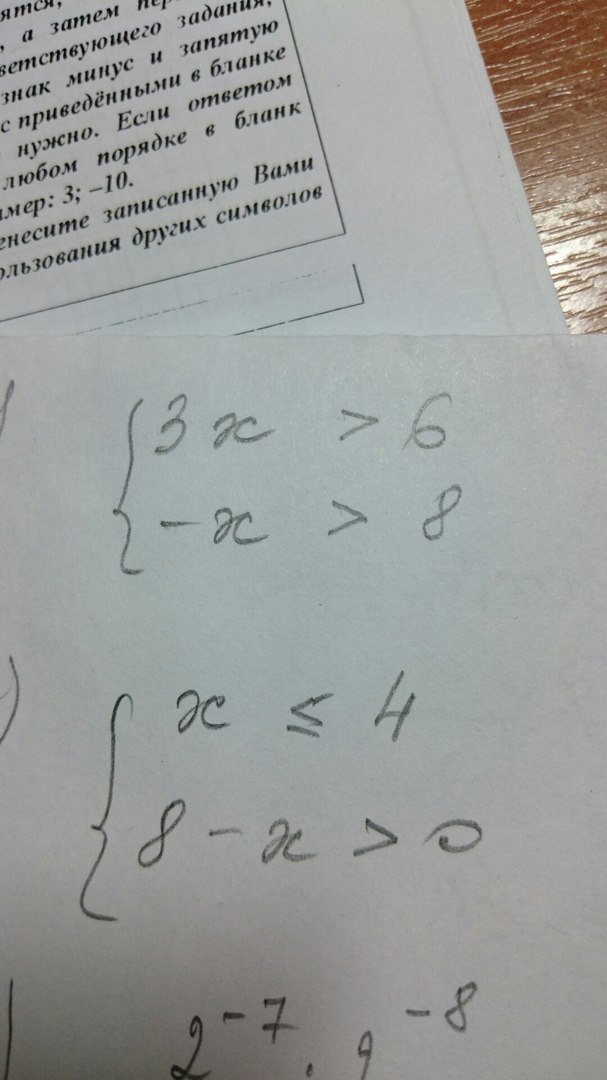 ятся,
, а затем пер
ветствующего задания,
знак минус и запятую
с приведёнными в бланке
нужно. Если ответом
любом порядке в бланк
мер: 3; –10.
енесите записанную Вами
ользования других символов
3x > 6
-x > 8
)
x ≤ 4
8 - x > 0
2^-7 .  ^-8